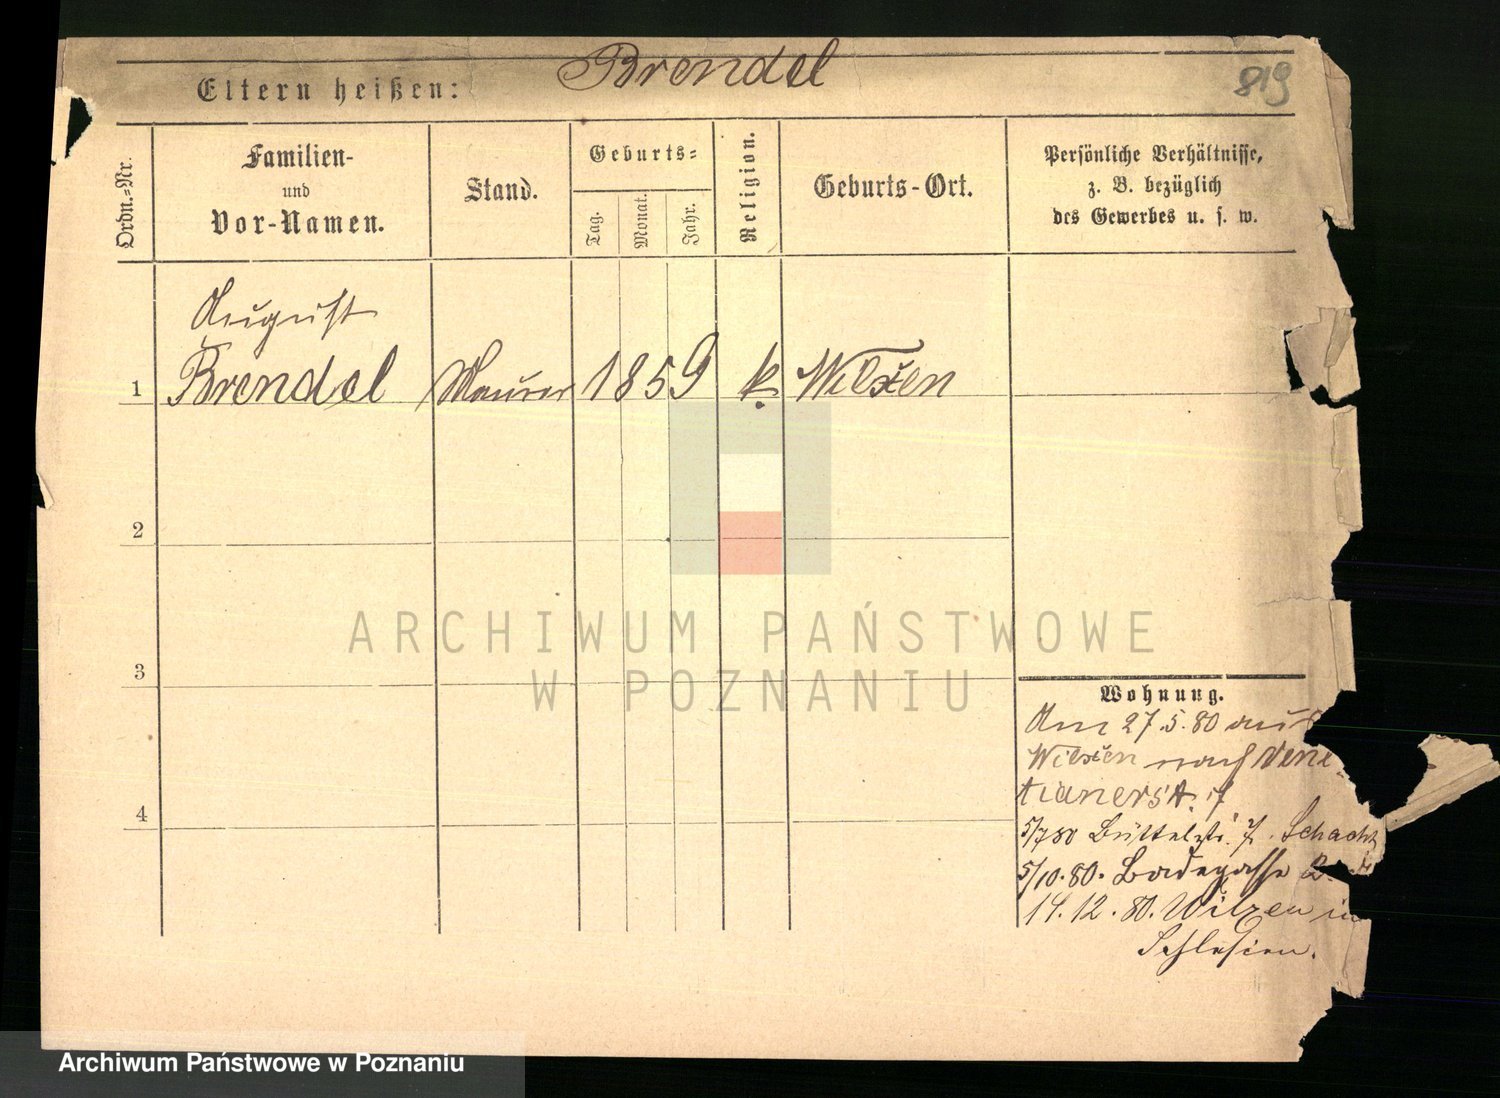 Brendel
819
Eltern heißen:
Ordn.=Nr.
Familien-
und
Vor-Namen.
Stand.
Geburts=
Tag.
Monat.
Jahr.
Religion.
Geburts-Ort.
Persönliche Verhältnisse,
z. B. bezüglich
des Gewerbes u. s. w.
August
1 Brendel Maurer 1859 k. Wilxen
2
3
4
ARCHIWUM PAŃSTWOWE
W POZNANIU
Wohnung.
Am 27.5.80 aus
Wilxen nach Vene-
tianerst.
5/7 80 Büttelstr. 7. Schacht
5/10.80. Badegasse 2.
14.12.80. Wilxen in
Schlesien.
Archiwum Państwowe w Poznaniu